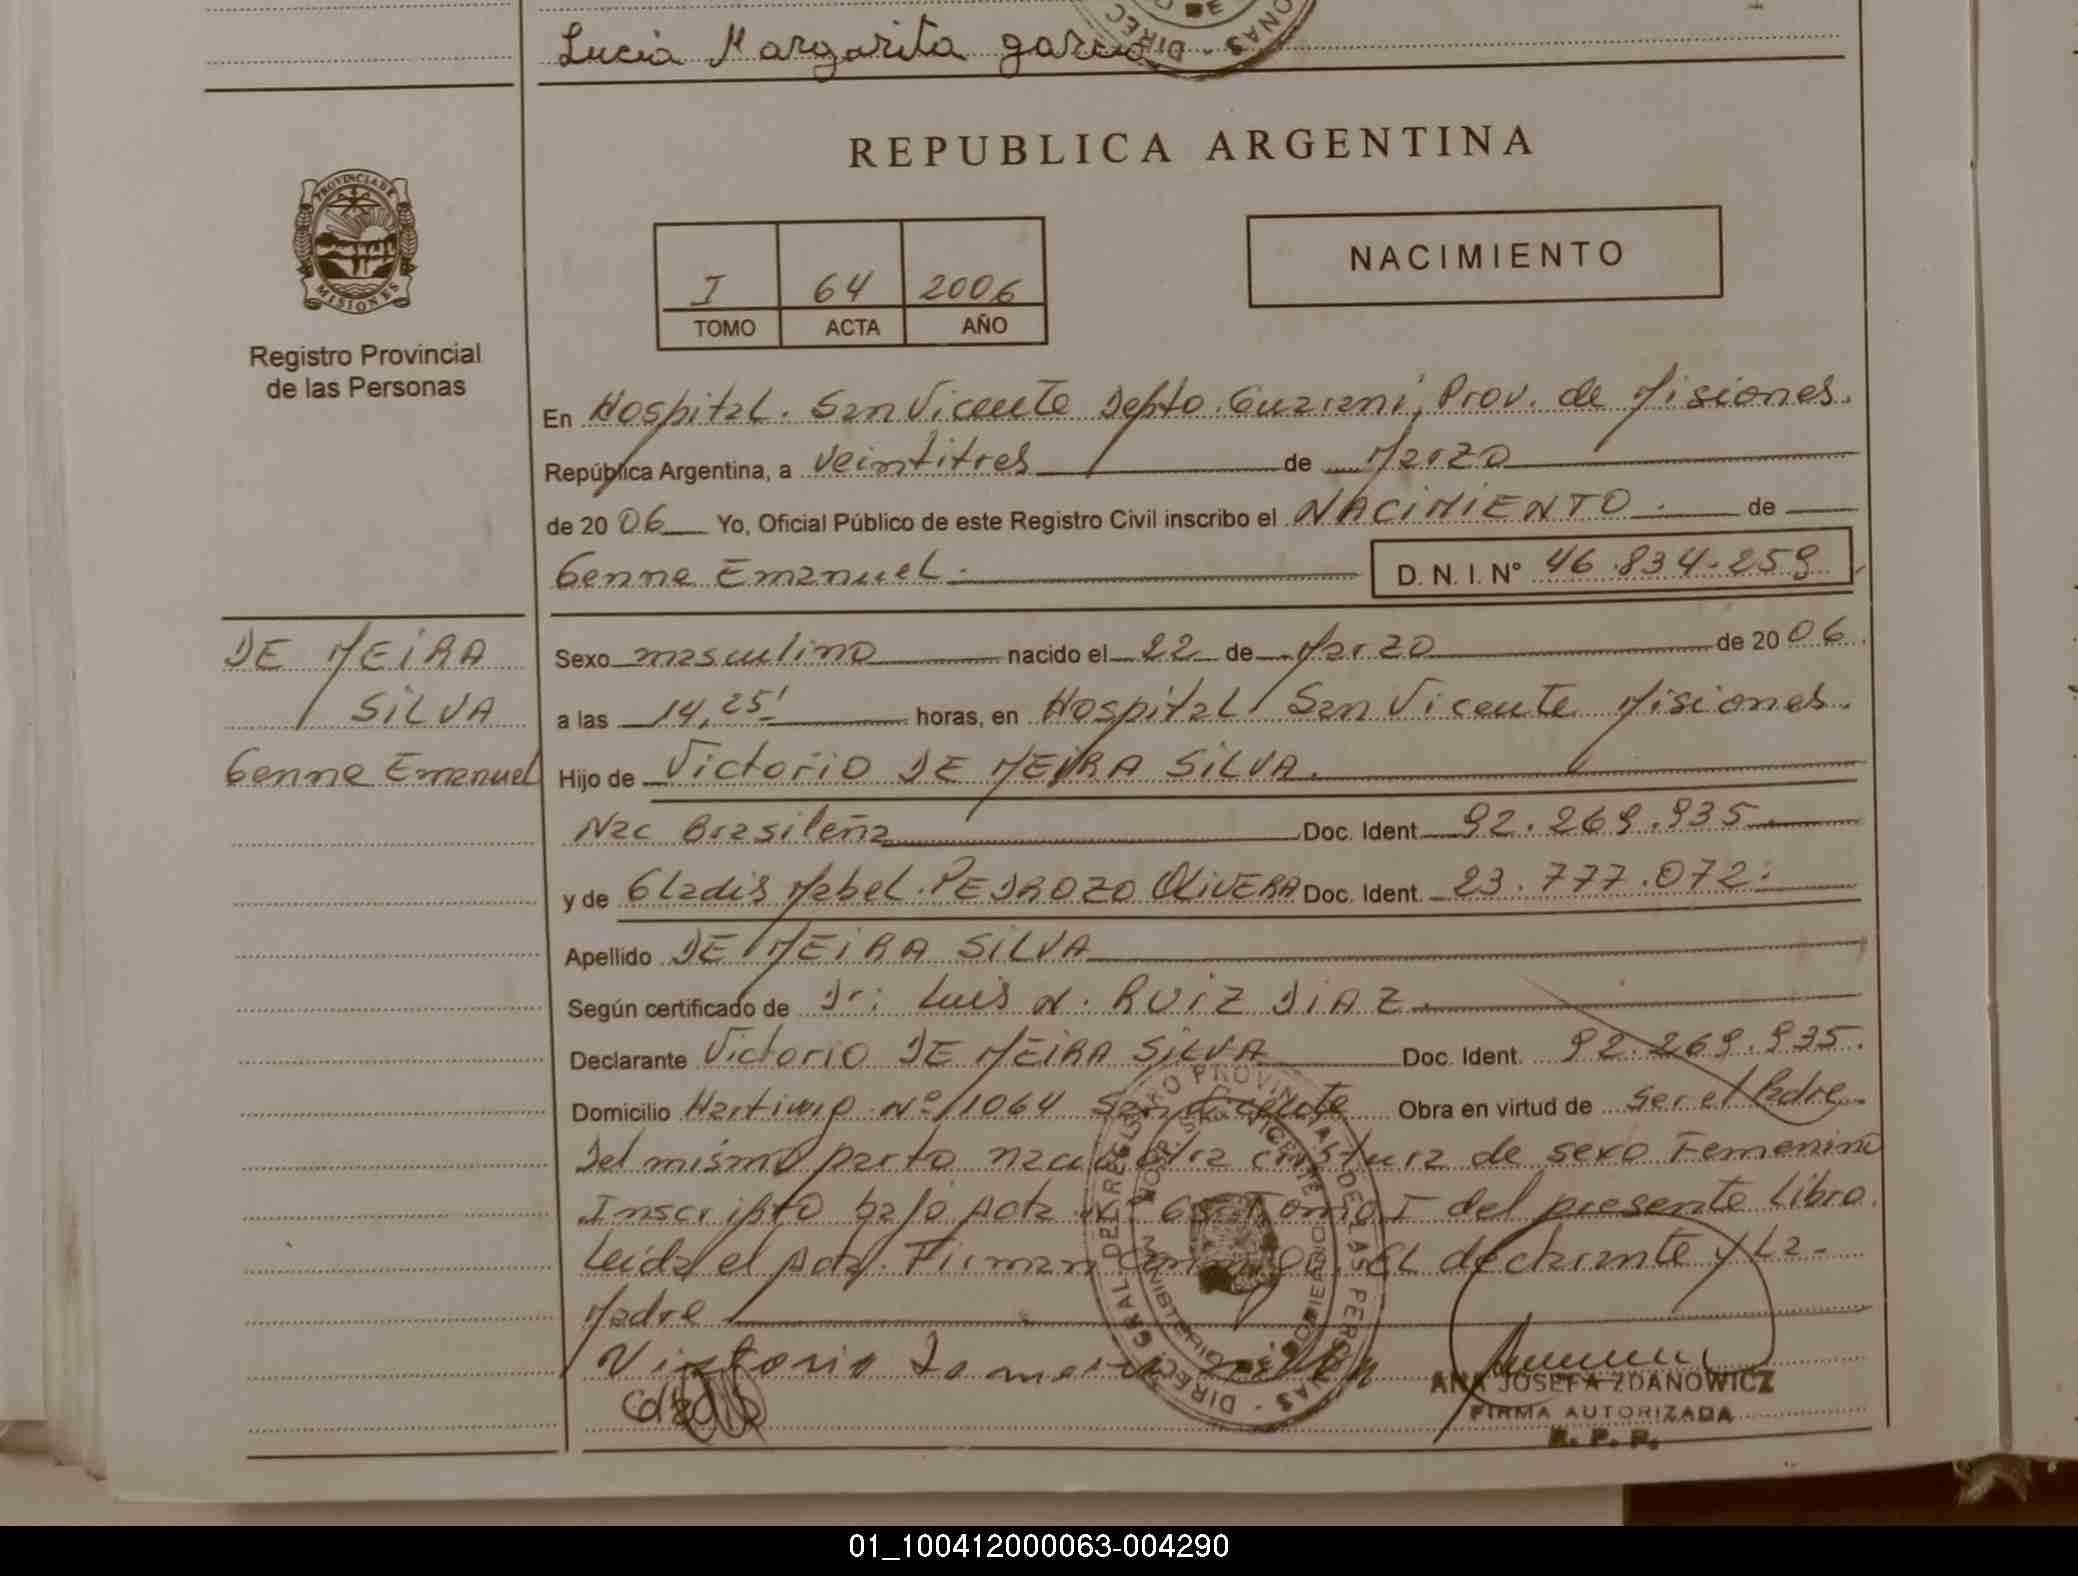 Lucia Margarita garcia
REPUBLICA ARGENTINA
PROVINCIA DE
MISIONES
Registro Provincial
de las Personas
I 64 2006
TOMO ACTA AÑO
NACIMIENTO
En Hospital. San Vicente Depto. Guarani, Prov. de Misiones.
República Argentina, a veintitres de Marzo
de 2006 Yo, Oficial Público de este Registro Civil inscribo el NACIMIENTO. de
Genne Emanuel. D. N. I. Nº 46.834.259
DE MEIRA
SILVA
Genne Emanuel
Sexo masculino nacido el 22 de Marzo de 2006.
a las 14,25' horas, en Hospital San Vicente Misiones.
Hijo de Victorio DE MEIRA SILVA.
Nac Brasileña Doc. Ident. 92.269.935
y de Gladis Mabel. PEDROZO OLIVERA Doc. Ident. 23.777.072.
Apellido DE MEIRA SILVA
Según certificado de Dr: Luis N. RUIZ DIAZ.
Declarante Victorio DE MEIRA SILVA Doc. Ident. 92.269.935.
Domicilio Nº 1064 San Vicente Obra en virtud de ser el Padre.
Del mismo parto nacio otra criatura de sexo Femenino
Inscripto bajo Acta Nº 65 Tomo I del presente Libro.
Leida el Acta. Firman Conmigo. El declarante y La
Madre
ANA JOSEFA ZDANOWICZ
FIRMA AUTORIZADA
R. P. P.
01_100412000063-004290